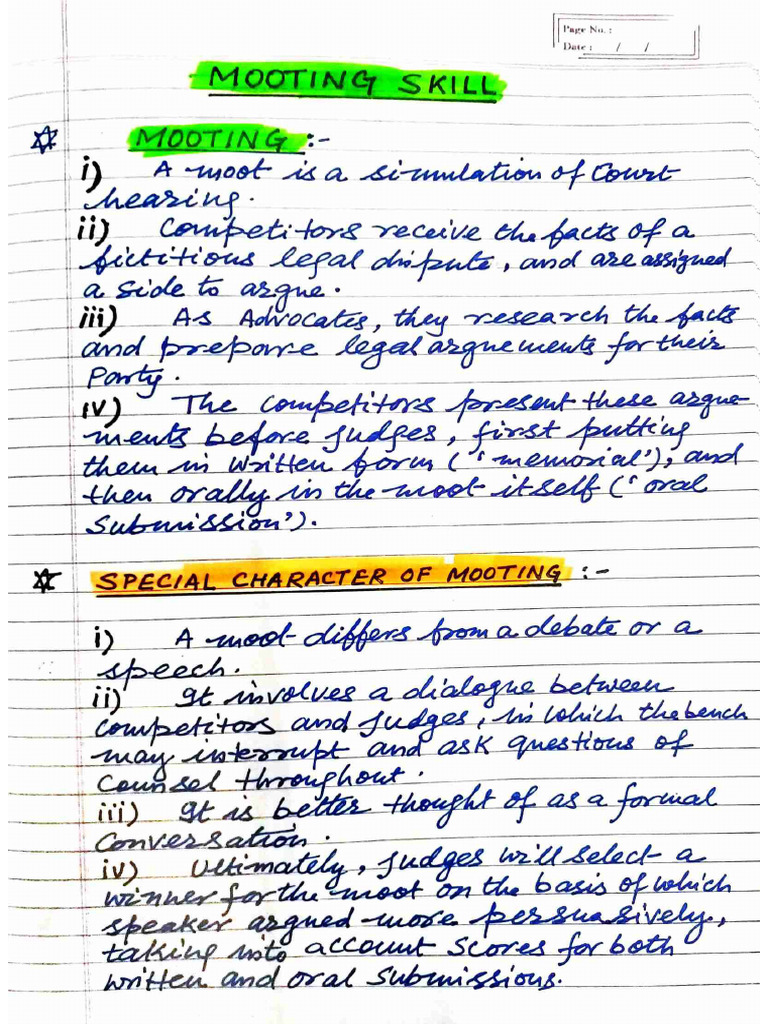 Page No. :
Date : / /
MOOTING SKILL
MOOTING :-
i) A moot is a simulation of Court
hearing.
ii) Competitors receive the facts of a
fictitious legal dispute, and are assigned
a side to argue.
iii) As Advocates, they research the facts
and prepare legal arguements for their
Party.
iv) The competitors present these argue-
ments before judges, first putting
them in written form (‘memorial’), and
then orally in the moot itself (‘oral
Submission’).
SPECIAL CHARACTER OF MOOTING :-
i) A moot differs from a debate or a
speech.
ii) It involves a dialogue between
competitors and judges, in which the bench
may interrupt and ask questions of
Counsel throughout.
iii) It is better thought of as a formal
Conversation.
iv) Ultimately, judges will select a
winner for the moot on the basis of which
speaker argued more persuasively,
taking into account scores for both
written and oral submissions.